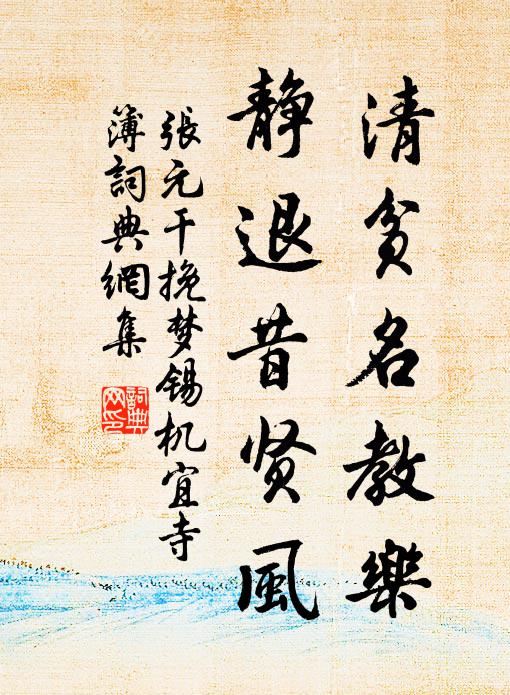 清贫名教樂
静退昔贤風
張元干挽梦锡机宜寺
簿詞典網集
詞典
网印